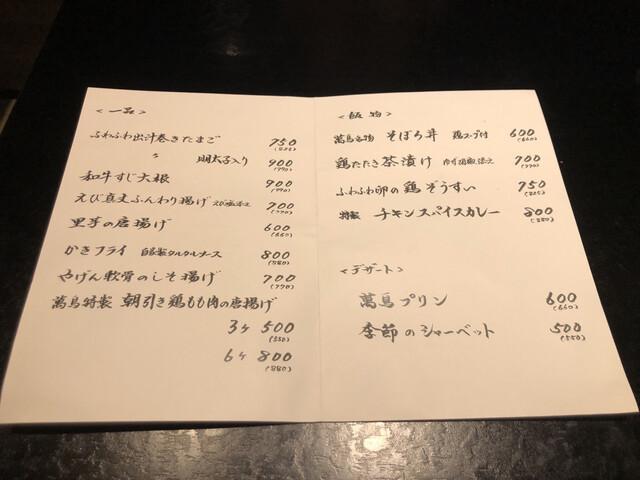 <一品>
ふわふわ出汁巻きたまご 750
(825)
〃 明太子入り 900
(990)
和牛すじ大根 900
(990)
えび真丈ふんわり揚げ 700
(770)
里芋の唐揚げ 600
(660)
かきフライ 自家製タルタルソース 800
(880)
やげん軟骨のしそ揚げ 700
(770)
萬鳥特製 朝引き鶏もも肉の唐揚げ
3ケ 500
(550)
6ケ 800
(880)
<飯物>
萬鳥名物 そぼろ丼 鶏スープ付 600
(660)
鶏たたき茶漬け 柚子胡椒添え 700
(770)
ふわふわ卵の鶏ぞうすい 750
(825)
特製 チキンスパイスカレー 800
(880)
<デザート>
萬鳥プリン 600
(660)
季節のシャーベット 500
(550)